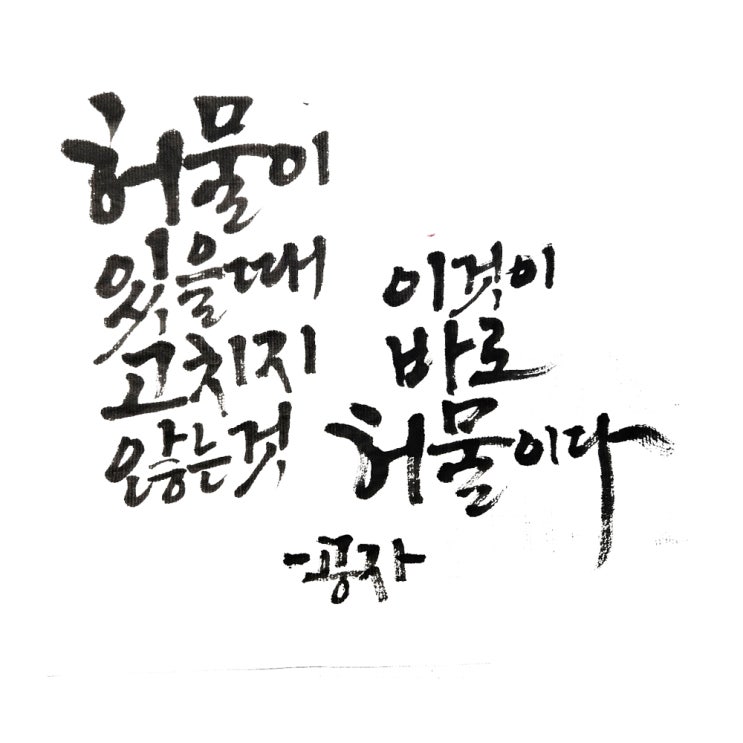 허물이
있을때
고치지
않는것
이것이
바로
허물이다
-공자